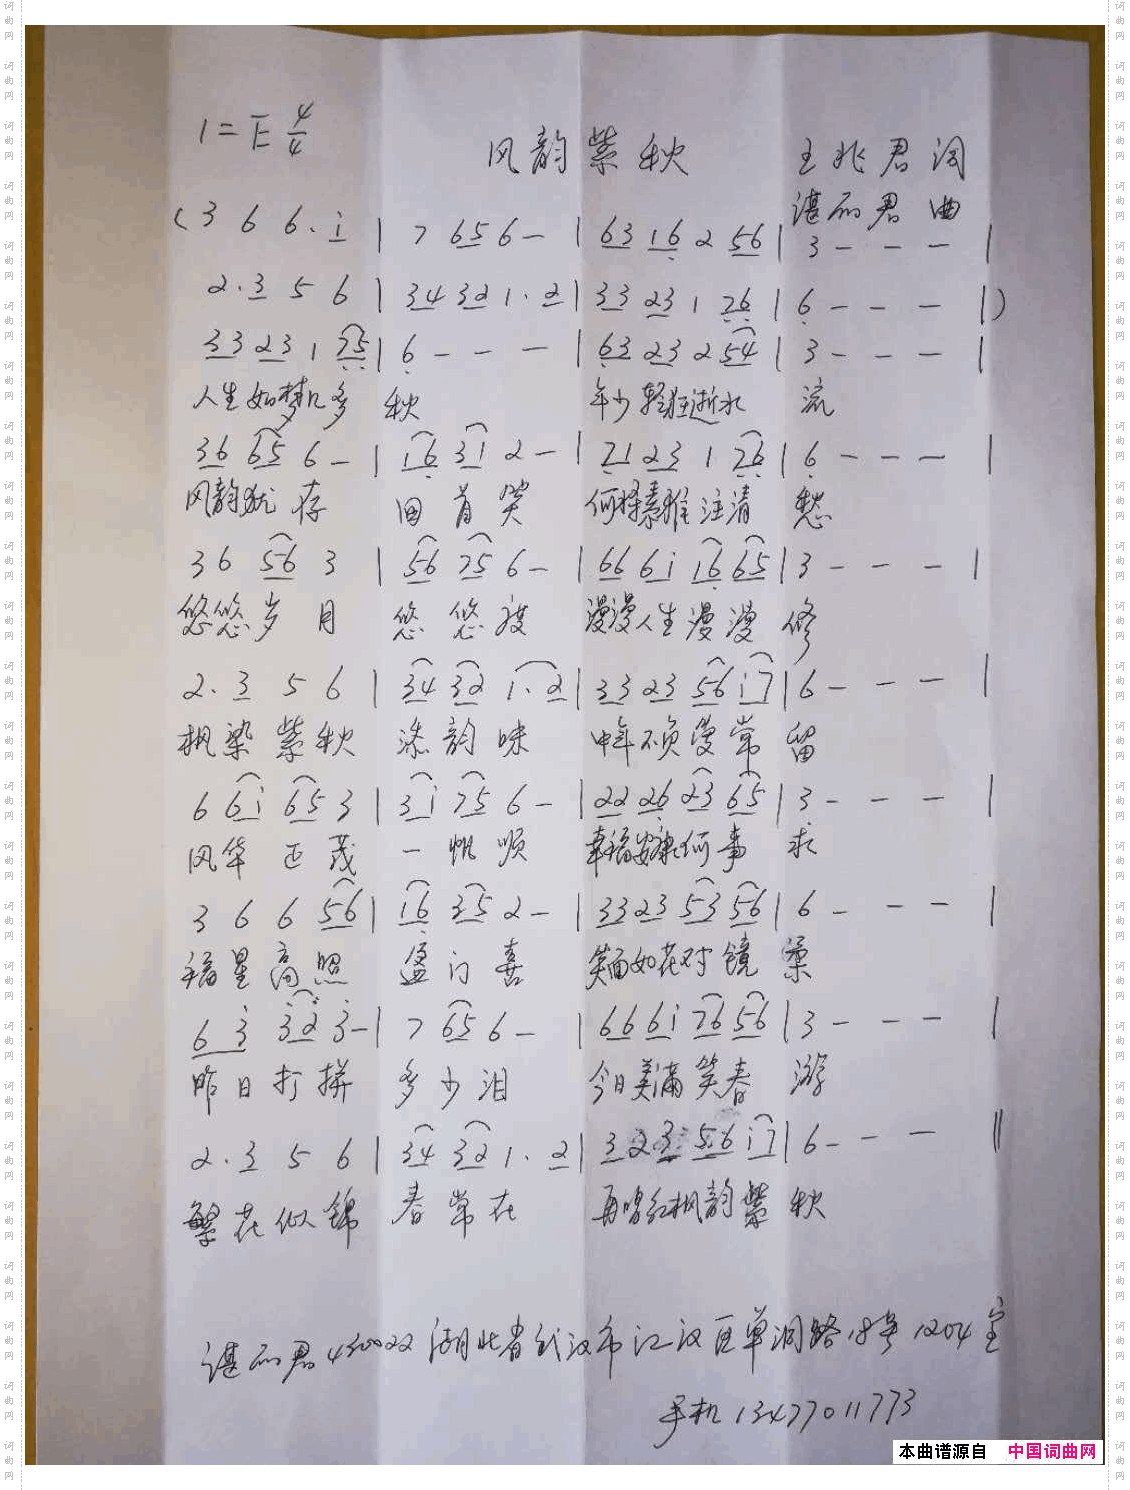 1=E 4/4
风韵紫秋
王兆君 词
谌丽君 曲
(3 6 6. i | 7 65 6 - | 63 16 2 56 | 3 - - - |
2. 3 5 6 | 34 32 1. 2 | 33 23 1 26 | 6 - - - |)
33 23 1 75 | 6 - - - | 63 23 2 54 | 3 - - - |
人生如梦几多 秋 年少轻狂逝水 流
36 65 6 - | 16 31 2 - | 71 23 1 76 | 6 - - - |
风韵犹存 回首笑 何将素雅注清 愁
36 56 3 | 56 75 6 - | 66 6i i6 65 | 3 - - - |
悠悠岁月 悠悠度 漫漫人生漫漫 修
2. 3 5 6 | 34 32 1. 2 | 33 23 56 i7 | 6 - - - |
枫染紫秋 添韵味 中年不负爱常 留
6 6i 65 3 | 3i 75 6 - | 22 26 23 65 | 3 - - - |
风华正茂 一帆顺 幸福安康何事 求
3 6 6 56 | i6 35 2 - | 33 23 53 56 | 6 - - - |
福星高照 盈门喜 笑面如花对镜 柔
6 3 32 3 - | 7 65 6 - | 66 6i 76 56 | 3 - - - |
昨日打拼 多少泪 今日美满笑春 游
2. 3 5 6 | 34 32 1. 2 | 3 2 3 5 6 i7 | 6 - - - ‖
繁花似锦 春常在 再唱红枫韵紫 秋
谌丽君430022 湖北省武汉市江汉区单洞路18号1204室
手机 13477011773
本曲谱源自 中国词曲网